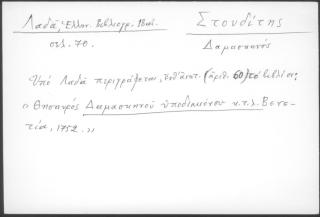 Λαδᾶ, Ἑλλην. Βιβλιογρ. 18αι.
σελ. 70.
Στουδίτης
Δαμασκηνός
Ὑπό Λαδᾶ περιγράφεται, ὑπ' (ἀριθ. 60) τό βιβλίον:
"Θησαυρός Δαμασκηνοῦ ὑποδιακόνου κ.τ.λ. Βενε-
τία, 1752."